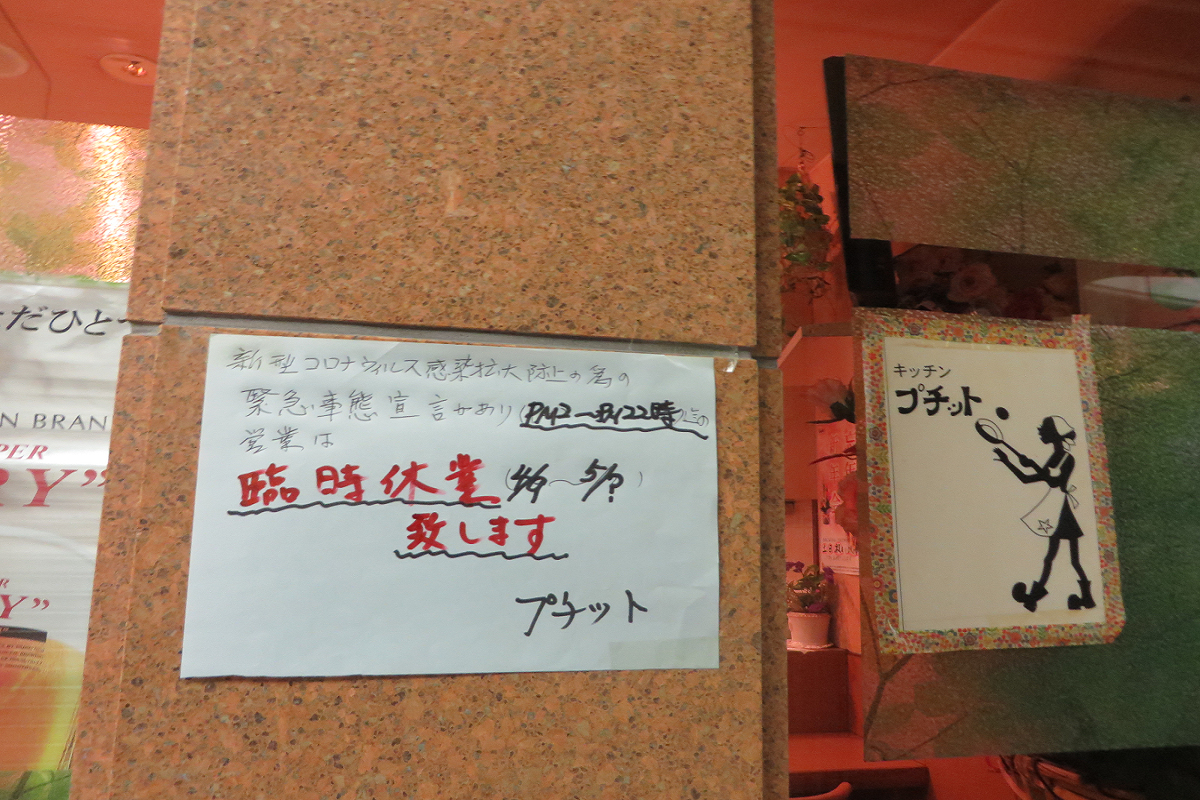 だひと
N BRAN
PER
RY”
Y”
新型コロナウィルス感染拡大防止の為の
緊急事態宣言があり(PM2〜PM22時迄の
営業は
臨時休業(4/9〜5/?)
致します
プチット
キッチン
プチット